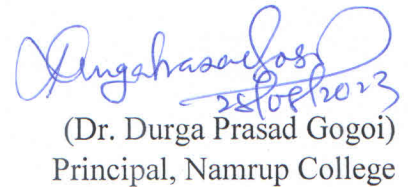 Durgaprasad Gogoi
28/08/2023
(Dr. Durga Prasad Gogoi)
Principal, Namrup College